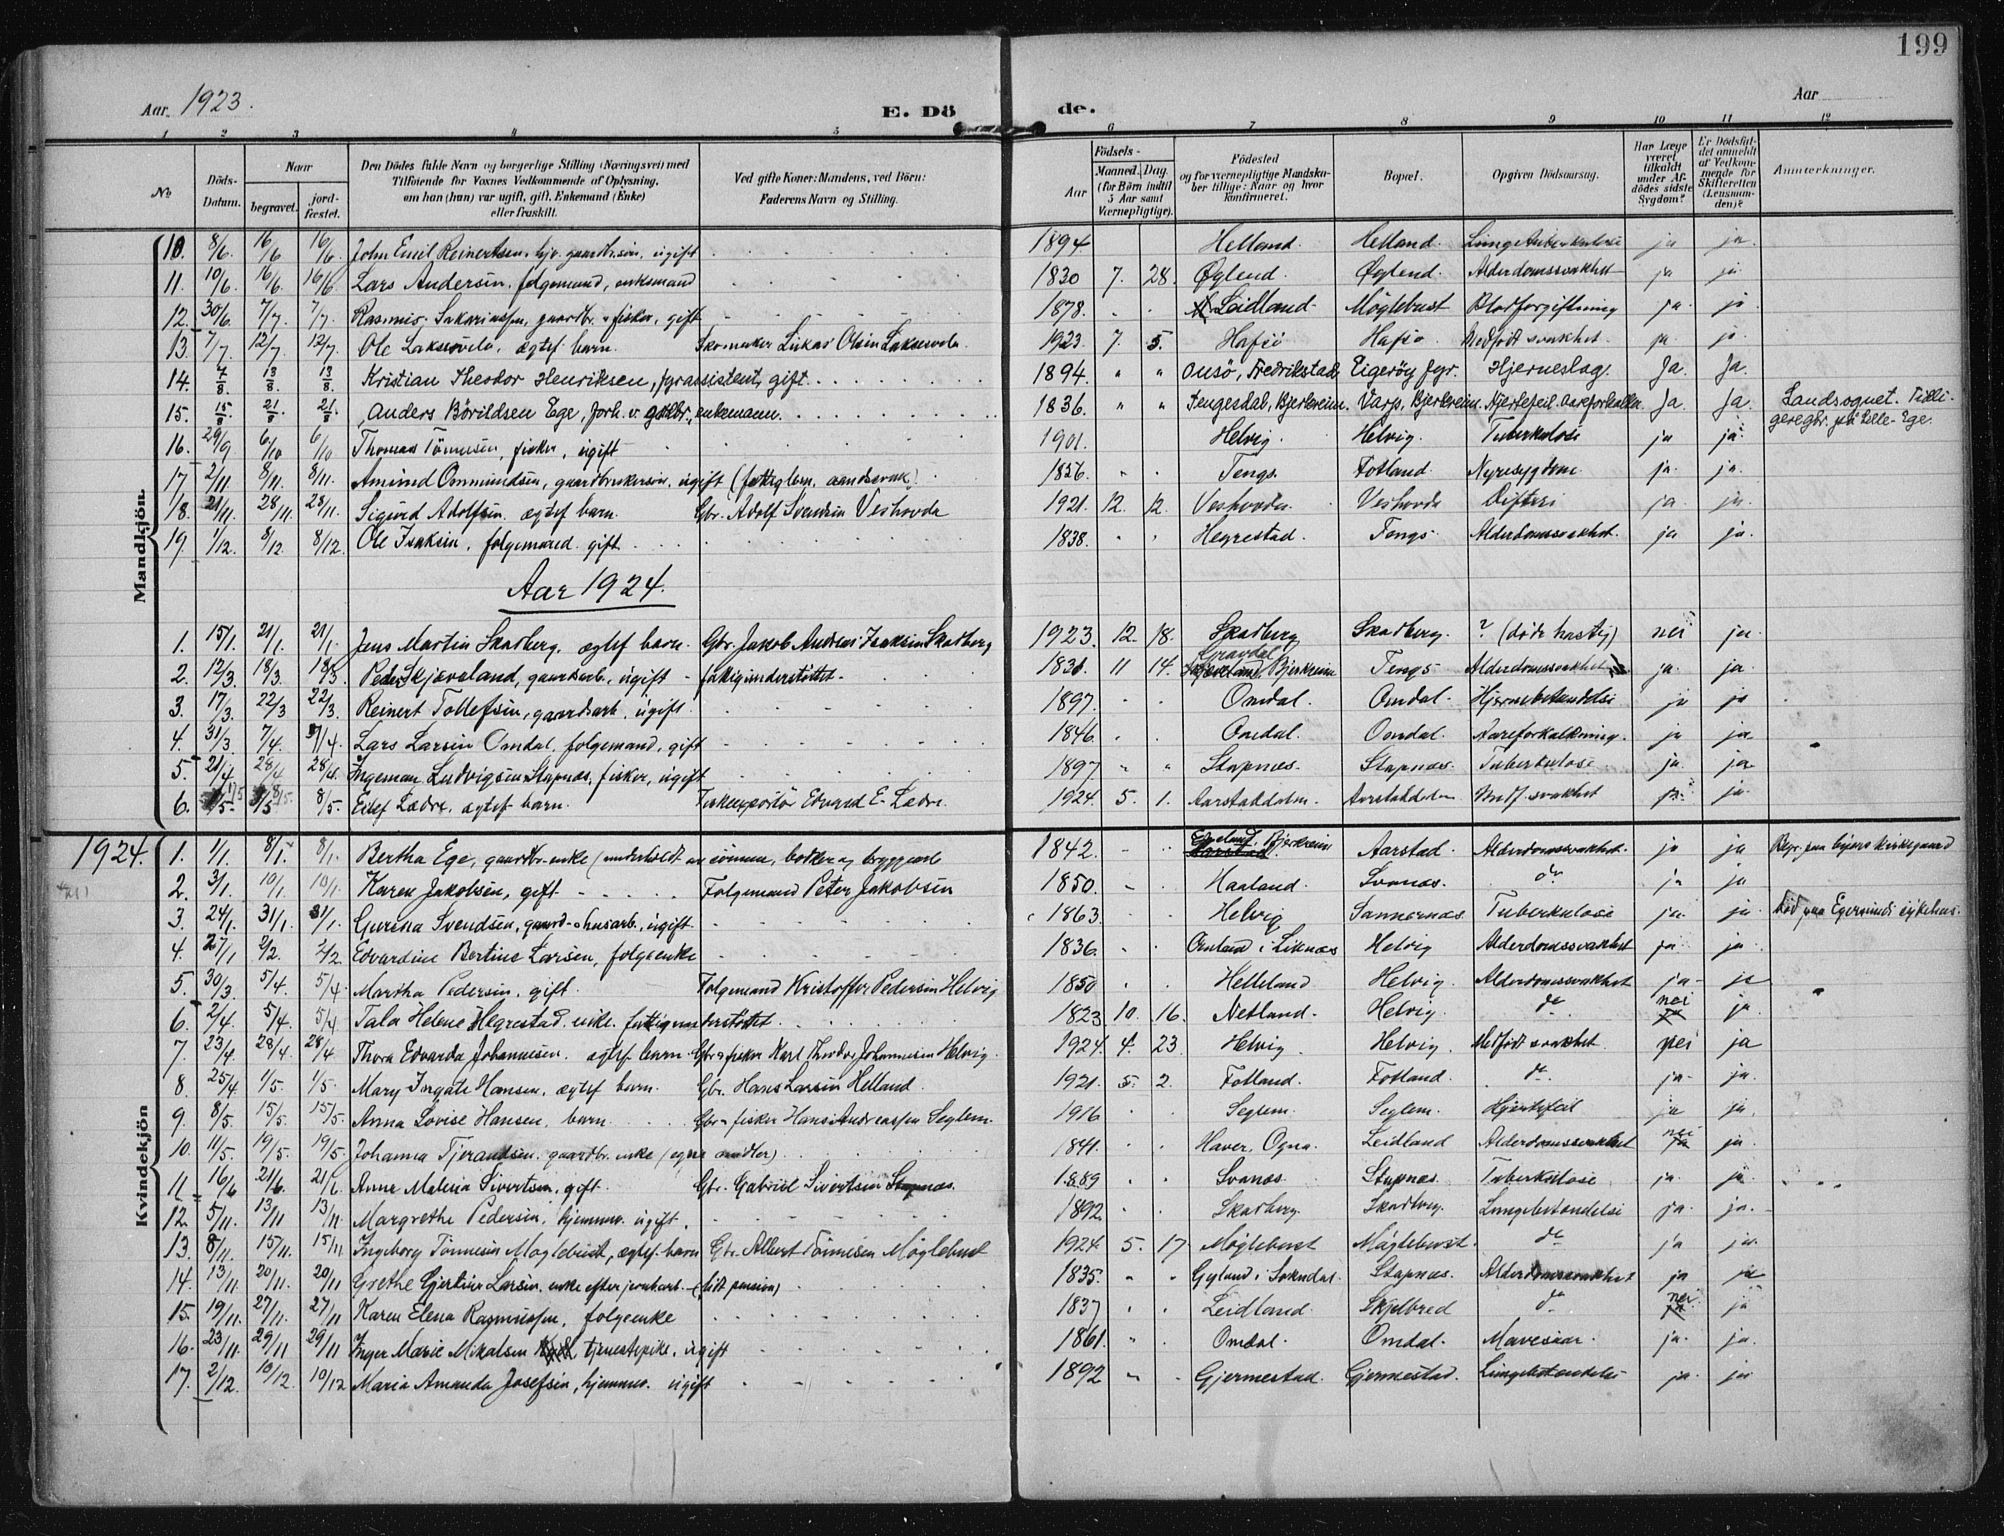 199
Aar 1923. E. Dö de. Aar
1 2 3 4 5 6 7 8 9 10 11 12
No Döds-Datum. Naar begravet. jordfæstet. Den Dödes fulde Navn og borgerlige Stilling (Næringsvei) med Tilföiende for Voxnes Vedkommende af Oplysning, om han (hun) var ugift, gift, Enkemand (Enke) eller fraskilt. Ved gifte Koner: Mandens, ved Börn: Faderens Navn og Stilling. Födsels- Aar Maaned. Dag. (for Börn indtil 5 Aar samt Værnepligtige). Födested og for værnepligtige Mandskaber tillige: Naar og hvor konfirmeret. Bopæl. Opgiven Dödsaarsag. Har Læge været tilkaldt under Afdödes sidste Sygdom? Er Dödsfaldet anmeldt af Vedkommende for Skifteretten (Lensmanden)? Anmerkninger.
Mandkjön.
10. 8/6. 16/6 16/6 John Emil Reinertsen, hjv. gaardbr.sön, ugift 1894 Helland. Helland. Lungetuberkulose ja ja
11. 10/6. 16/6 16/6. Lars Andersen, folgemand, enkemand 1830 7. 28. Øglend. Øglend. Alderdomssvakhet ja ja
12. 30/6 7/7 7/7. Rasmus Sakariassen, gaardbr. o fisker, gift 1878. Leidland. Möglebust Blodforgiftning ja. ja
13. 7/7. 12/7 12/7. Ole Laksvelv, ægtef. barn. Skomaker Lukas Olsen 1923 7. 5. Hafsö Hafsö Medfödt svakhet. ja ja.
14. 4/8. 13/8. 13/8 Kristian Theodor Henriksen, fyrassistent, gift. 1894. " " Onsö, Fredrikstad Eigeröy fyr. Hjerneslag. Ja. Ja.
15. 15/8. 21/8 21/8. Anders Börildsen Ege, forh. v. gdbr., enkemann. 1836. " " Tengesdal, Bjerkreim. Varp, Bjerkreim. Hjertefeil. Aareforkalkn. Ja. Ja. Landsognet. Tidligere gbr. på Lille-Ege.
16. 29/9 6/10 6/10 Thomas Tönnesen, fisker, ugift 1901. Helvig. Helvig. Tuberkulose ja ja.
17. 2/11 8/11. 8/11. Amund Ommundsen, gaardbrukersön, ugift (fattiglem, aandssvak) 1856 Tengs. Fotland. Nyresygdom. ja. ja.
18. 21/11. 28/11. 28/11. Sigurd Adolfsen, ægtef. barn. Gbr. Adolf Svendsen Veshovda 1921. 12. 12. Veshovda Veshovda Difteri ja ja.
19. 1/12. 8/12 8/12. Ole Isaksen, folgemand. gift. 1838. Hegrestad. Tengs. Alderdomssvakhet. ja ja.
Aar 1924.
1. 15/1. 21/1. 21/1. Jens Martin Skadberg, ægtef. barn. Gbr. Jakob Andreas Isaksen Skadberg 1923. 12. 18. Skadberg Skadberg. ? (döde hastig) nei ja.
2. 12/3. 18/3. 18/3 Peder Skjæveland, gaardsarb., ugift - fattigunderstöttet. 11 14. Gravdal Bjerkreim Tengs. Alderdomssvakhet ja. ja
3. 17/3. 22/3 22/3. Reinert Tollefsen, gaardsarb., ugift. 1897. Omdal. Omdal. Hjernebetændelse ja ja.
4. 31/3. 7/4. 7/4. Lars Larsen Omdal, folgemand, gift 1846. Omdal. Omdal. Aareforkalkning. ja ja.
5. 21/4 28/4 28/4. Ingeman Ludvigsen Stapnæs, fisker, ugift 1897 " " Stapnæs. Stapnæs. Tuberkulose ja. ja
6. 8/5. Eilef Lædre, ægtef. barn. Fiskeexportör Edvard E. Lædre. 1924. 5. 1. Aarstaddalen. Aarstaddalen Medf. svakhet ja. ja.
Kvindekjön
1924. 1. 1/1. 8/1. 8/1. Bertha Ege, gaardbr. enke (underholdt av sönnen, bodker og bryggearb 1842. Bjerkreim Aarstad. Alderdomssvakhet. ja ja Begr. paa byens kirkegaard
2. 3/1. 10/1. 10/1. Karen Jakobsen, gift Folgemand Peter Jakobsen 1850. Haaland. Svanæs. do ja ja
3. 24/1. 31/1. 31/1. Gurina Svendsen, gaard- o husarb., ugift. 1863. Helvig Sannarnæs. Tuberkulose ja. ja. Död paa Egersunds sykehus.
4. 27/1 2/2. 2/2 Edvardine Bertine Larsen, folgeenke 1836. Omland i Liknæs Helvig Alderdomssvakhet ja ja.
5. 30/3 5/4. 5/4. Martha Pedersen, gift. Folgemand Kristoffer Pedersen Helvig 1850 Helleland Helvig. Alderdomssvakhet ja- ja
6. 2/4. 5/4. 5/4 Tala Helene Hegrestad, enke. fattigunderstöttet 1823 10. 16. Netland. Helvig. do nei ja.
7. 23/4. 28/4. 28/4. Thora Edvarda Johannesen, ægtef. barn. Gbr. o fisker Karl Thodor Johannesen Helvig. 1924. 4. 23 Helvig. Helvig. Medfödt svakhet. nei ja
8. 25/4 1/5. 1/5. Mary Irgate Hansen, ægtef. barn. Gbr. Hans Larsen Helland. 1921. 5. 2. Fotland. Fotland. do. ja- ja.
9. 8/5. 15/5. 15/5 Anna Lovise Hansen, barn. Gbr. o fisker Hans Andreassen Seglem. 1916 Seglem. Seglem. Hjertefeil ja ja.
10. 11/5. 19/5. 19/5. Johanna Tjerandsen, gaardbr. enke (egne midler) 1841. Haver, Ogna. Leidland Alderdomssvakhet nei ja.
11. 16/6 21/6. 21/6 Anne Malena Sivertsen, gift. Gbr. Gabriel Sivertsen Stapnæs. 1889 Svanæs. Stapnæs. Tuberkulose ja. ja.
12. 5/11. 13/11 13/11. Margrethe Pedersen, hjemmev. ugift. 1892. Skadberg. Skadberg. Lungebetændelse ja. ja.
13. 8/11. 15/11. 15/11 Ingeborg Tönnesen Möglebust, ægtef. barn Gbr. Albert Tönnesen Möglebust 1924. 5. 17. Möglebust Möglebust. do ja ja.
14. 13/11. 20/11. 20/11 Grethe Gjertine Larsen, enke efter jernbarb. (lidt pension) 1835. " " Gyland i Sokndal. Stapnæs. Alderdomssvakhet ja ja
15. 19/11. 27/11. 27/11 Karen Elena Rasmussen, folgeenke 1837 Leidland Skjelbred do nei. ja
16. 23/11. 29/11 29/11 Inger Marie Mikalsen tjenestepike. ugift 1861. " Omdal. Omdal. Mavesaar. ja. ja.
17. 2/12. 10/12. 10/12 Maria Amanda Josefsen, hjemmev. ugift 1892 Gjermestad. Gjermestad. Lungebetændelse ja. ja